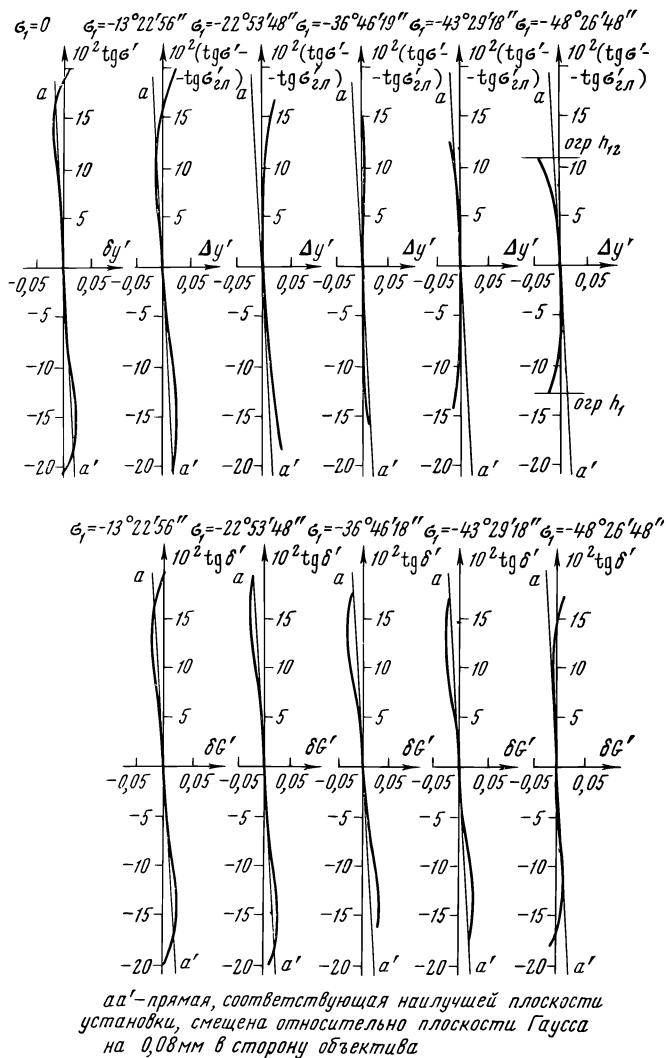 σ₁=0 σ₁=-13°22′56″ σ₁=-22°53′48″ σ₁=-36°46′19″ σ₁=-43°29′18″ σ₁=-48°26′48″
10² tgσ′ 10²(tgσ′- 10²(tgσ′- 10²(tgσ′- 10²(tgσ′- 10²(tgσ′-
-tgσ′гл) -tgσ′гл) -tgσ′гл) -tgσ′гл) -tgσ′гл)
a a a a a a
15 15 15 15 15 15
огр h₁₂
10 10 10 10 10 10
5 5 5 5 5 5
δy′ Δy′ Δy′ Δy′ Δy′ Δy′
-0,05 0,05 -0,05 0,05 -0,05 0,05 -0,05 0,05 -0,05 0,05 -0,05 0,05
-5 -5 -5 -5 -5 -5
-10 -10 -10 -10 -10 -10
огр h₁
-15 -15 -15 -15 -15 -15
-20 a′ -20 a′ -20 a′ -20 a′ -20 a′ -20 a′
σ₁=-13°22′56″ σ₁=-22°53′48″ σ₁=-36°46′18″ σ₁=-43°29′18″ σ₁=-48°26′48″
10² tgδ′ 10² tgδ′ 10² tgδ′ 10² tgδ′ 10² tgδ′
a a a a a
15 15 15 15 15
10 10 10 10 10
5 5 5 5 5
δG′ δG′ δG′ δG′ δG′
-0,05 0,05 -0,05 0,05 -0,05 0,05 -0,05 0,05 -0,05 0,05
-5 -5 -5 -5 -5
-10 -10 -10 -10 -10
-15 -15 -15 -15 -15
-20 a′ -20 a′ -20 a′ -20 a′ -20 a′
aa′-прямая, соответствующая наилучшей плоскости
установки, смещена относительно плоскости Гаусса
на 0,08мм в сторону объектива